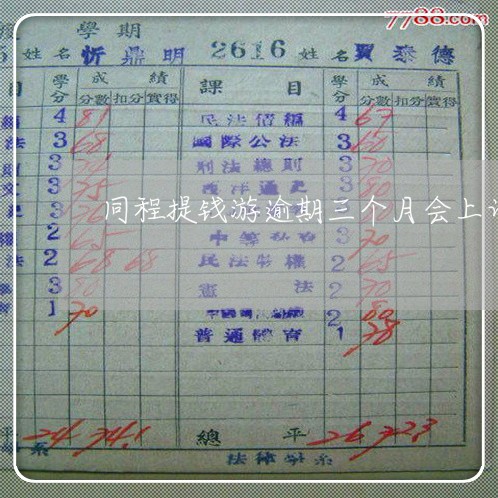 7788.com
學期
姓名 忻鼎明 2616 姓名 賈泰德
目 學分 成績 課目 學分 成績
分數 扣分 實得 分數 扣分 實得
4 81 民法債編 4 67
法 3 68 國際公法 3 60
3 刑法總則 3 70
3 75 西洋通史 3 80
同程提钱游逾期三个月会上
2 65 3 70
法 2 68 68 民法物權 2 65
3 80 憲法 2 70
1 70 2 80
普通體育 1 78
平 24 74.1 總平 26 72.3
系 法律學系